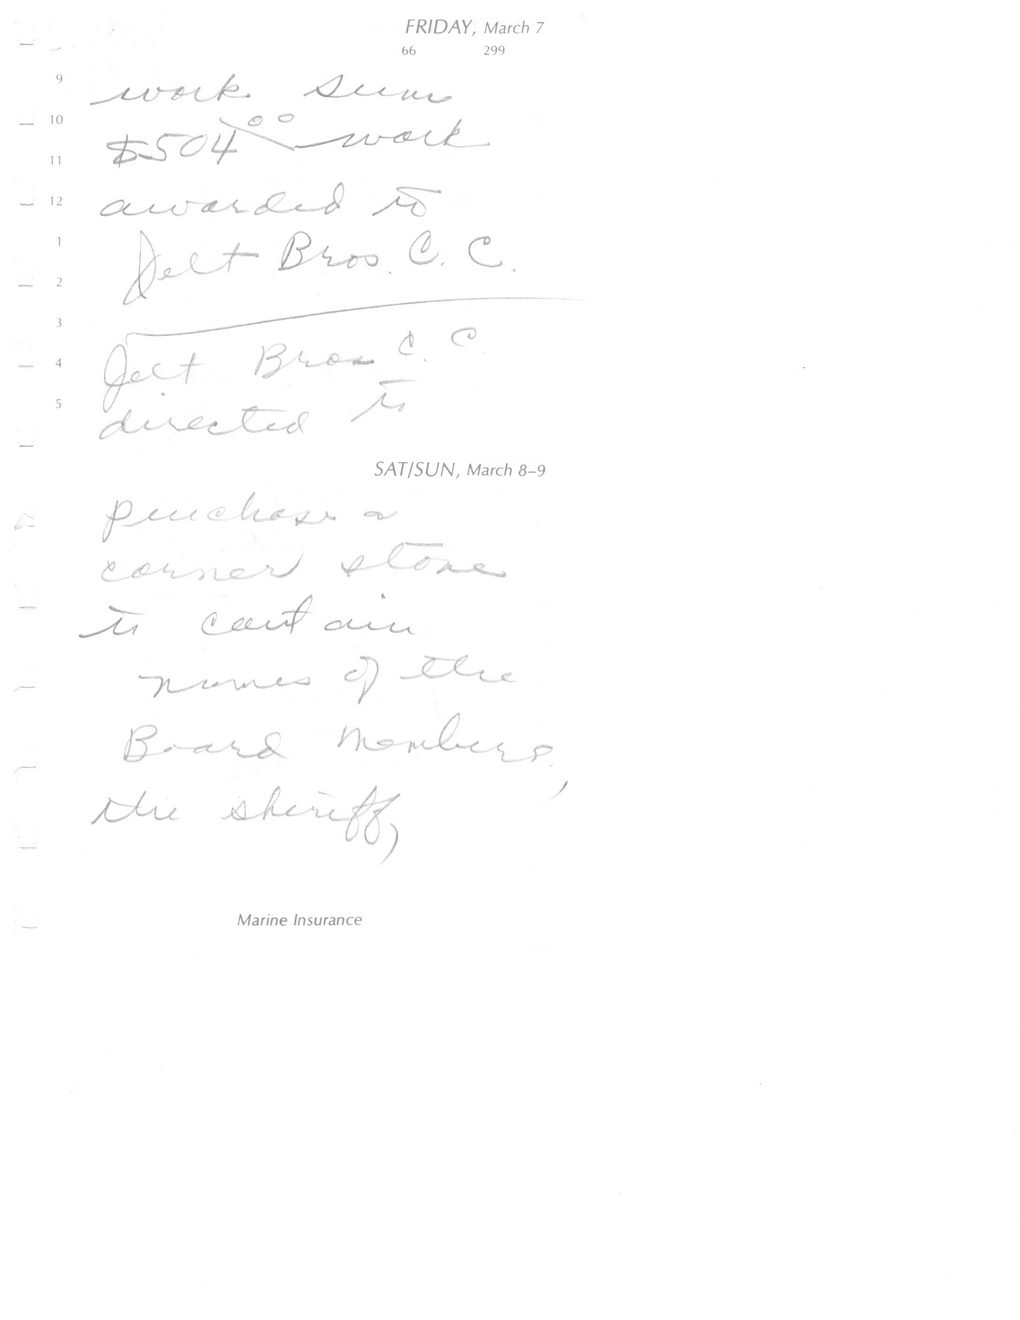 FRIDAY, March 7
66 299
9
work sum
10
$504.00 work
11
12
awarded to
1
Jelt Bros. C. C.
2
3
Jelt Bros C. C
4
5
directed to
SAT/SUN, March 8–9
purchase a
corner stone
to contain
names of the
Board Members,
the sheriff,
Marine Insurance